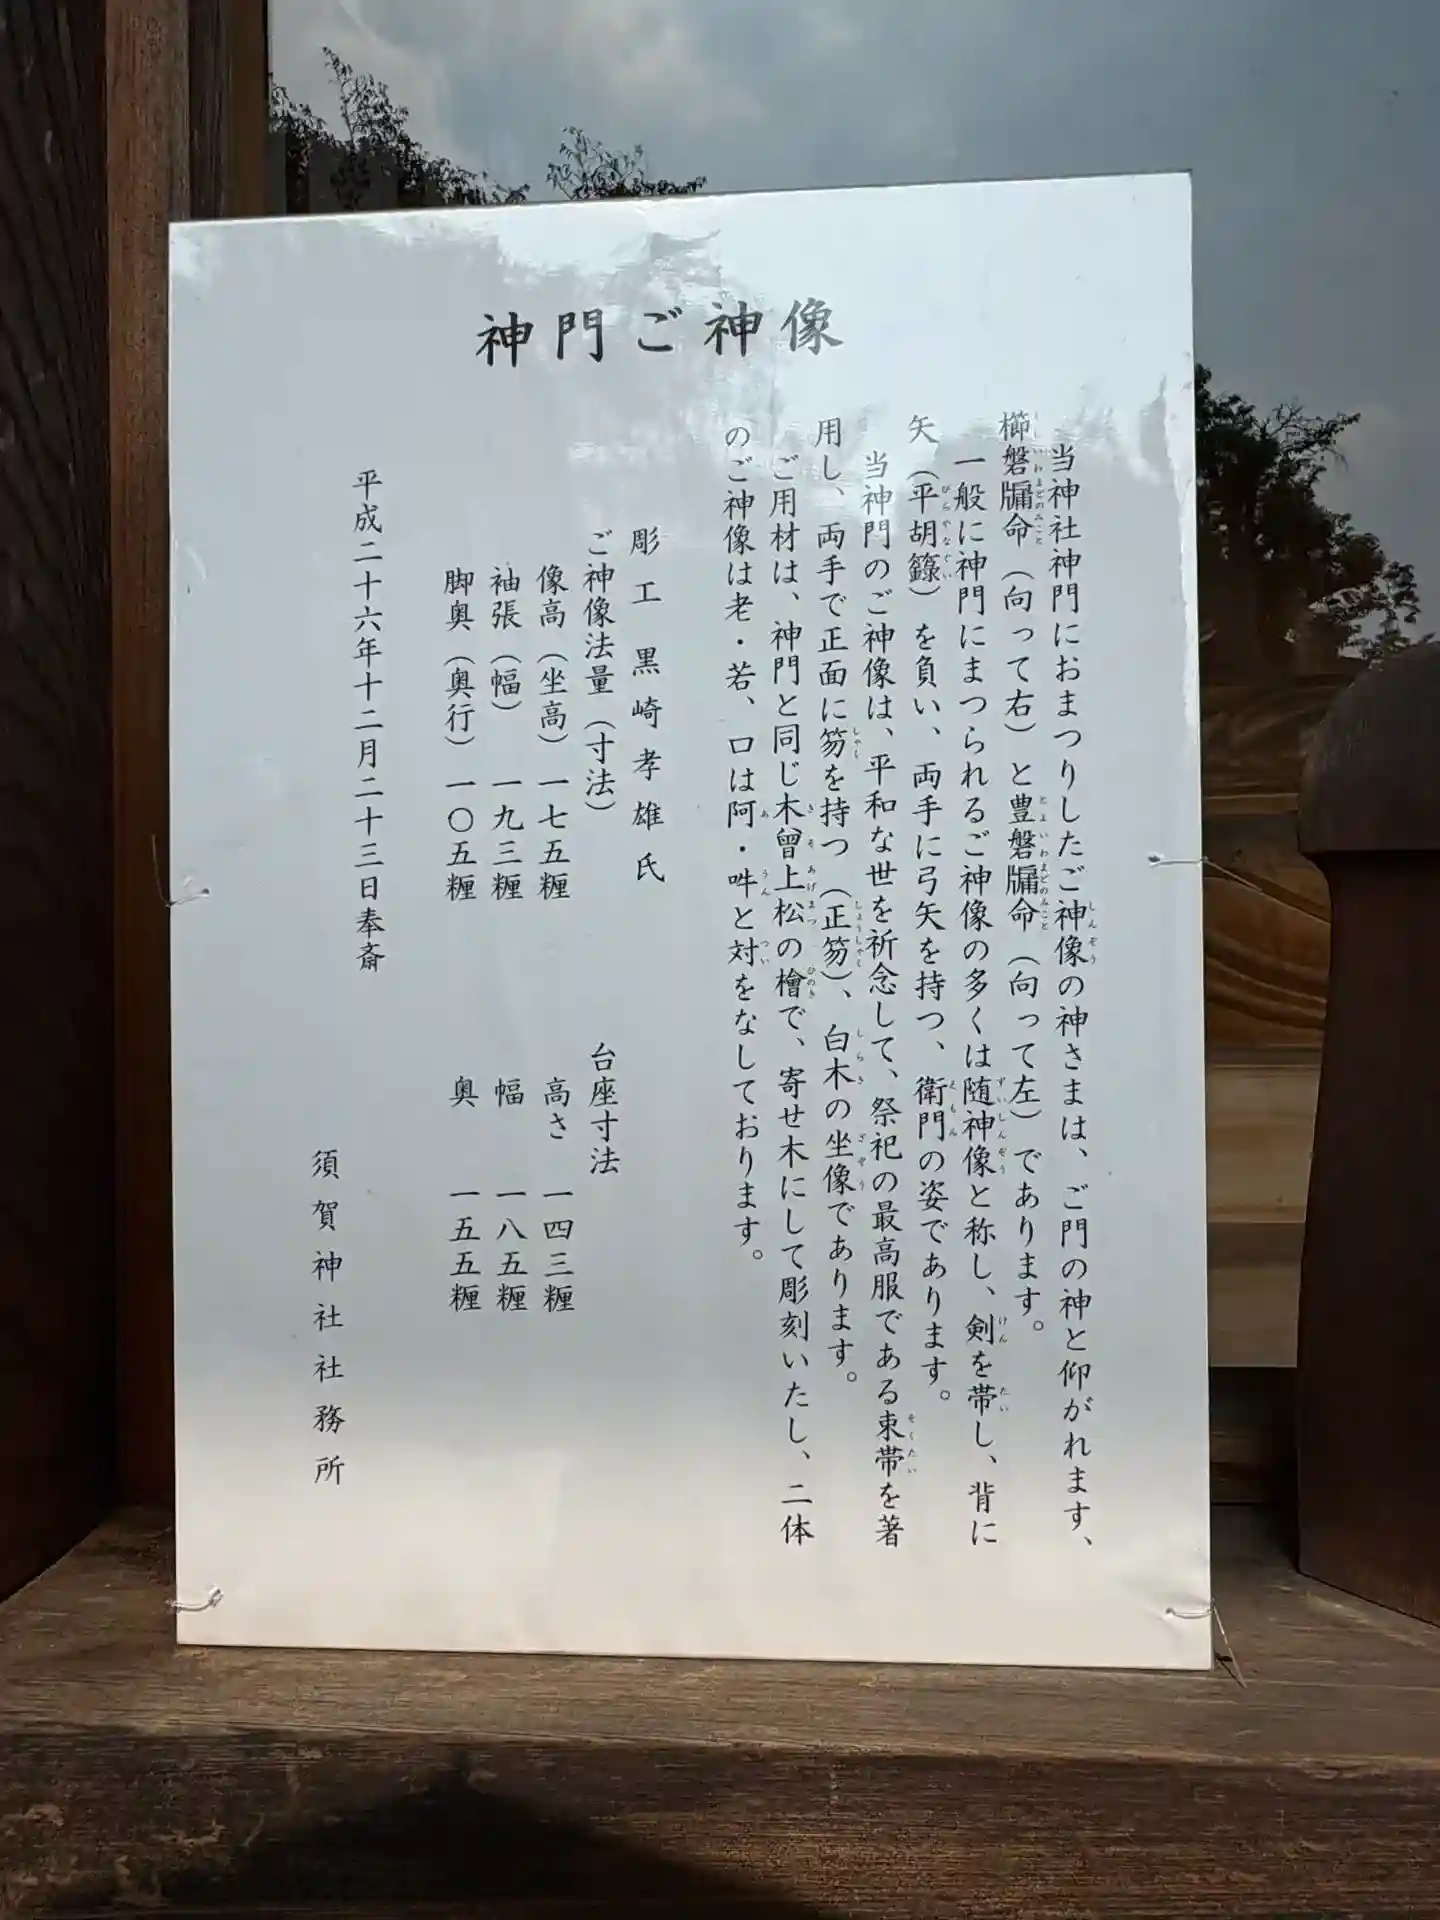 神門ご神像
当神社神門におまつりしたご神像の神さまは、ご門の神と仰がれます、
櫛磐牖命（向って右）と豊磐牖命（向って左）であります。
一般に神門にまつられるご神像の多くは随神像と称し、剣を帯し、背に
矢（平胡籙）を負い、両手に弓矢を持つ、衛門の姿であります。
当神門のご神像は、平和な世を祈念して、祭祀の最高服である束帯を著
用し、両手で正面に笏を持つ（正笏）、白木の坐像であります。
ご用材は、神門と同じ木曾上松の檜で、寄せ木にして彫刻いたし、二体
のご神像は老・若、口は阿・吽と対をなしております。
彫工 黒崎孝雄氏
ご神像法量（寸法） 台座寸法
像高（坐高）一七五糎 高さ 一四三糎
袖張（幅） 一九三糎 幅 一八五糎
脚奥（奥行）一〇五糎 奥 一五五糎
平成二十六年十二月二十三日奉斎
須賀神社社務所